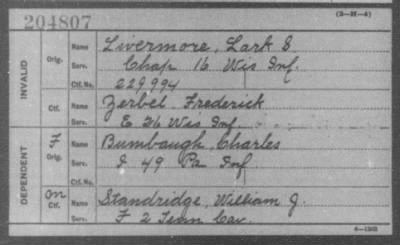 (3-H-4)
204807
INVALID
Orig.
Name Livermore, Lark S.
Serv. Chap 16 Wis Inf.
Ctf. No. 229,994
Ctf.
Name Zerbel Frederick
Serv. E 26 Wis Inf.
DEPENDENT
F
Orig.
Name Bumbaugh, Charles
Serv. I 49 Pa Inf.
Ctf. No.
Ctf.
Name Standridge, William J.
Serv. F 2 Tenn Cav.